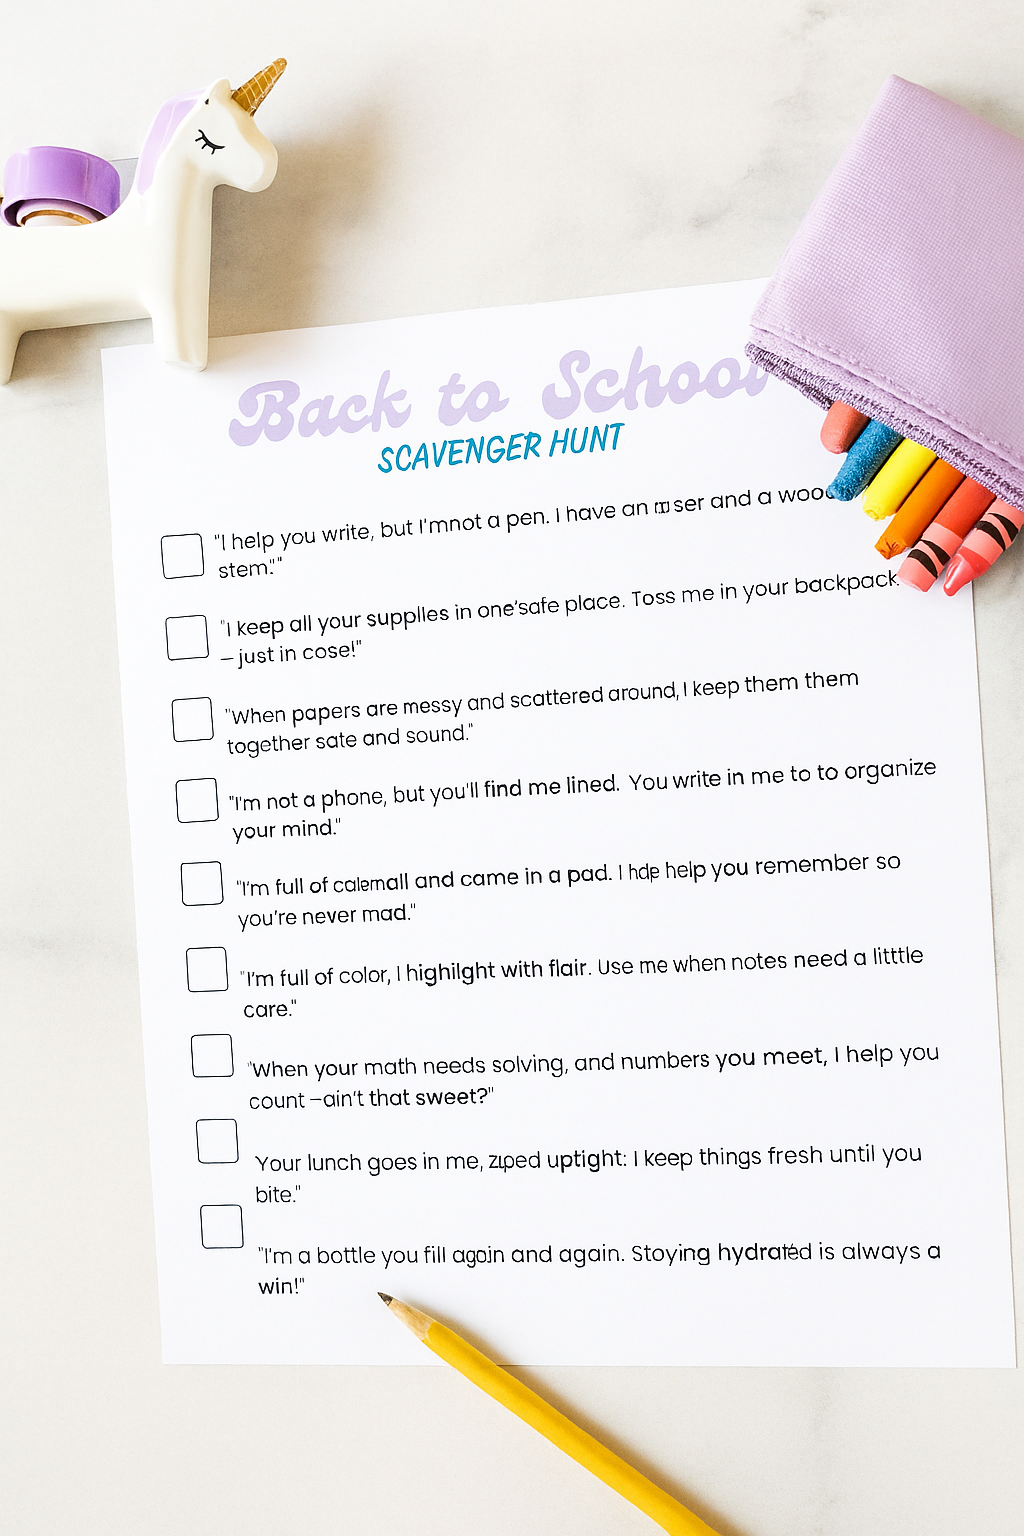 Back to School
SCAVENGER HUNT
"I help you write, but I'mnot a pen. I have an and a
stem"."
"I keep all your supplles in one'safe place. Toss me in your backpack.
– just in cose!"
"When papers are messy and scattered around, I keep them them
together sate and sound."
"I'm not a phone, but you'll find me lined. You write in me to to organize
your mind."
"I'm full of and came in a pad. I help you remember so
you're never mad."
"I'm full of color, I highilght with flair. Use me when notes need a litttle
care."
"When your math needs solving, and numbers you meet, I help you
count –ain't that sweet?"
Your lunch goes in me, uptight: I keep things fresh until you
bite."
"I'm a bottle you fill agoin and again. Stoying hydratéd is always a
win!"